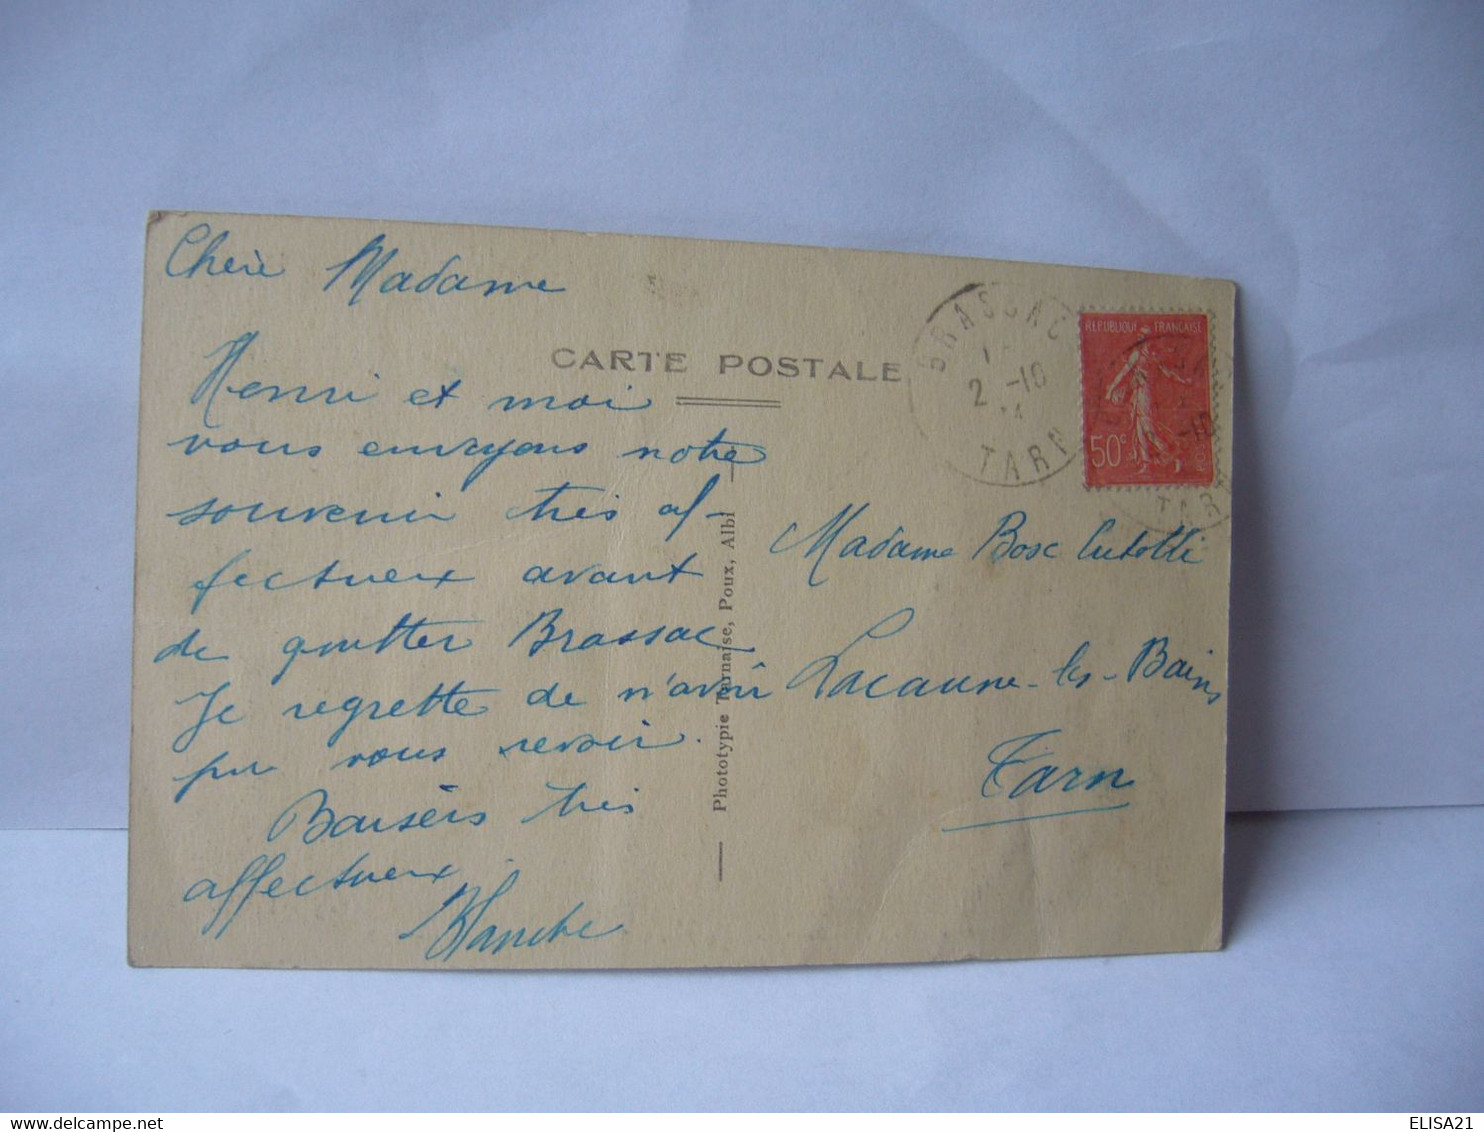 Chère Madame
CARTE POSTALE
Henri et moi
vous envoyons notre
souvenir très af-
fectueux avant
de quitter Brassac
Je regrette de n'avoir
pu vous revoir.
Baisers très
affectueux
Blanche
Phototypie Tarnaise, Poux, Albi
BRASSAC
2 -10
TARN
REPUBLIQUE FRANÇAISE
50c
-10
TAR
Madame Bosc
Lacaune-les-Bains
Tarn
ELISA21